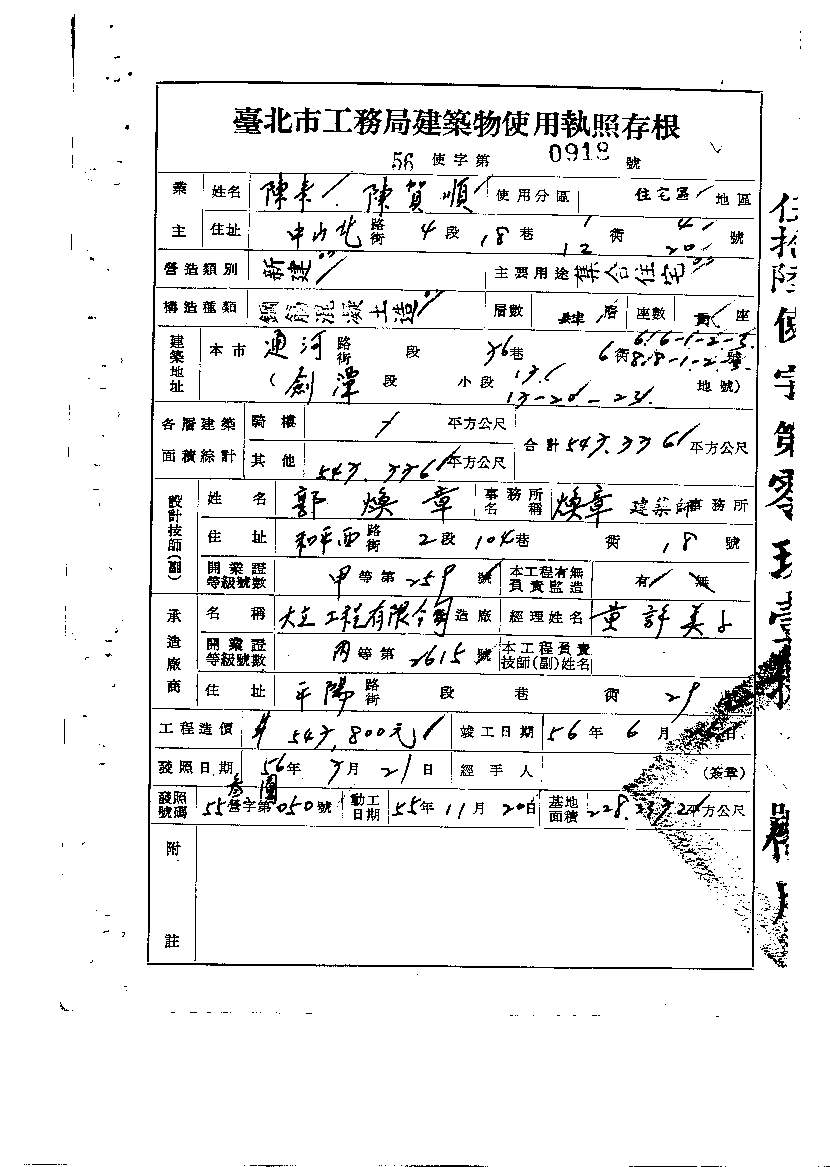 臺北市工務局建築物使用執照存根
56 使字第 0918 號
業主 姓名 陳 陳賀順 使用分區 住宅區 地區
住址 中山北 路街 4 段 18 巷 12 街 4 20 號
營造類別 新建 主要用途 集合住宅
構造種類 鋼筋混凝土造 層數 肆 層 座數 座
建築地址 本市 通河 路街 段 36 巷 6 街 6.16-1-2-3. 8.8-1-2-3. 號
(劍潭 段 小段 13. 13-20-23. 地號)
各層建築面積綜計 騎樓 平方公尺 合計 543.336 平方公尺
其他 543.336 平方公尺
設計技師(副) 姓名 郭煥章 事務所名稱 煥章 建築師事務所
住址 和平西 路街 2 段 104 巷 街 18 號
開業證等級號數 甲 等第 259 號 本工程有無負責監造 有 無
承造廠商 名稱 大立工程有限公司 造廠 經理姓名 黃許美子
開業證等級號數 丙 等第 2615 號 本工程負責技師(副)姓名
住址 平陽 路街 段 巷 街 29
工程造價 543,800元 竣工日期 56 年 6 月 日
發照日期 56 年 月 21 日 經手人 (簽章)
發照號碼 55 營字第 050 號 動工日期 55 年 11 月 20 日 基地面積 228. 平方公尺
附註
伍拾陸使字第零玖壹